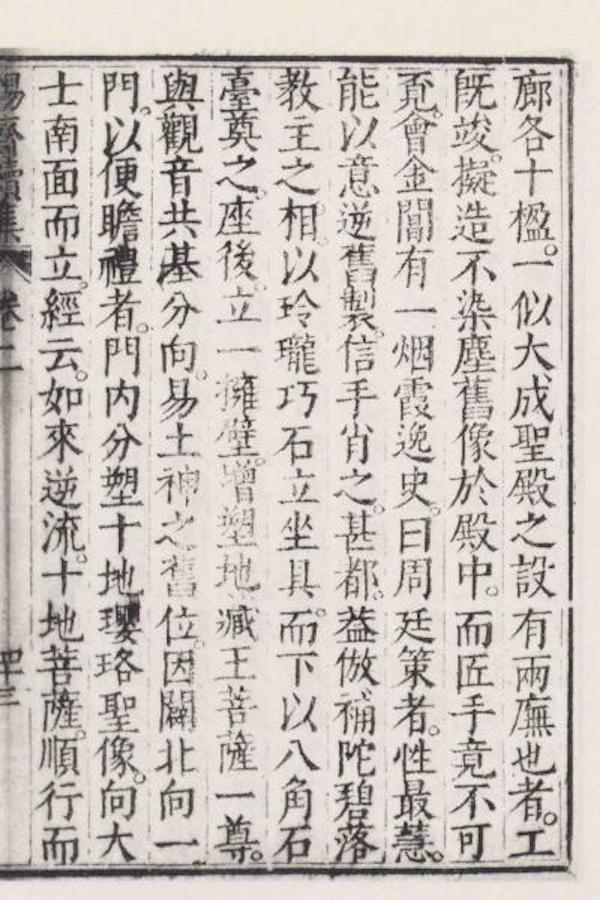 廊各十楹。一似大成聖殿之設有兩廡也者。工
既竣。擬造不染塵舊像於殿中。而匠手竟不可
覓。會金閶有一烟霞逸史。曰周廷策者。性最慧。
能以意逆舊製。信手肖之。甚都。益倣補陀碧落
教主之相。以玲瓏巧石立坐具。而下以八角石
臺奠之。座後。立一擁壁。增塑地藏王菩薩一尊。
與觀音共基分向。易土神之舊位。因闢北向一
門。以便瞻禮者。門内分塑十地瓔珞聖像。向大
士南面而立。經云。如來逆流。十地菩薩。順行而
賜齋續集 卷二 四十三